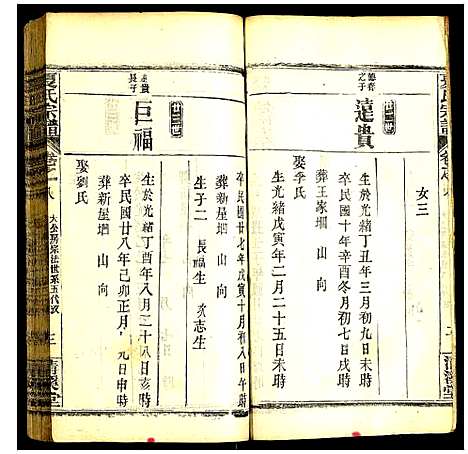 夏氏宗譜
女三
德春之子
達貴
生於光緒丁丑年三月初九日未時
卒民國十年辛酉冬月初七日戌時
葬王家堋 山 向
娶李氏
生光緒戊寅年二月二十五日未時
卒民國廿七年戊寅十月初八日午時
葬新屋堋 山 向
生子二 長福生 次志生
達貴長子
巨福
生於光緒丁酉年八月二十八日亥時
卒民國廿八年己卯正月元日申時
葬新屋堋 山 向
娶劉氏
夏氏宗譜
卷之八
大公房泉法世系五代
清溪堂